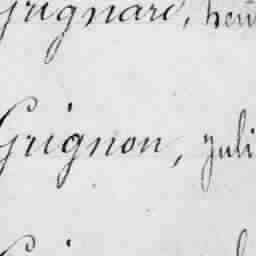 Grignard,
Grignon, Juli